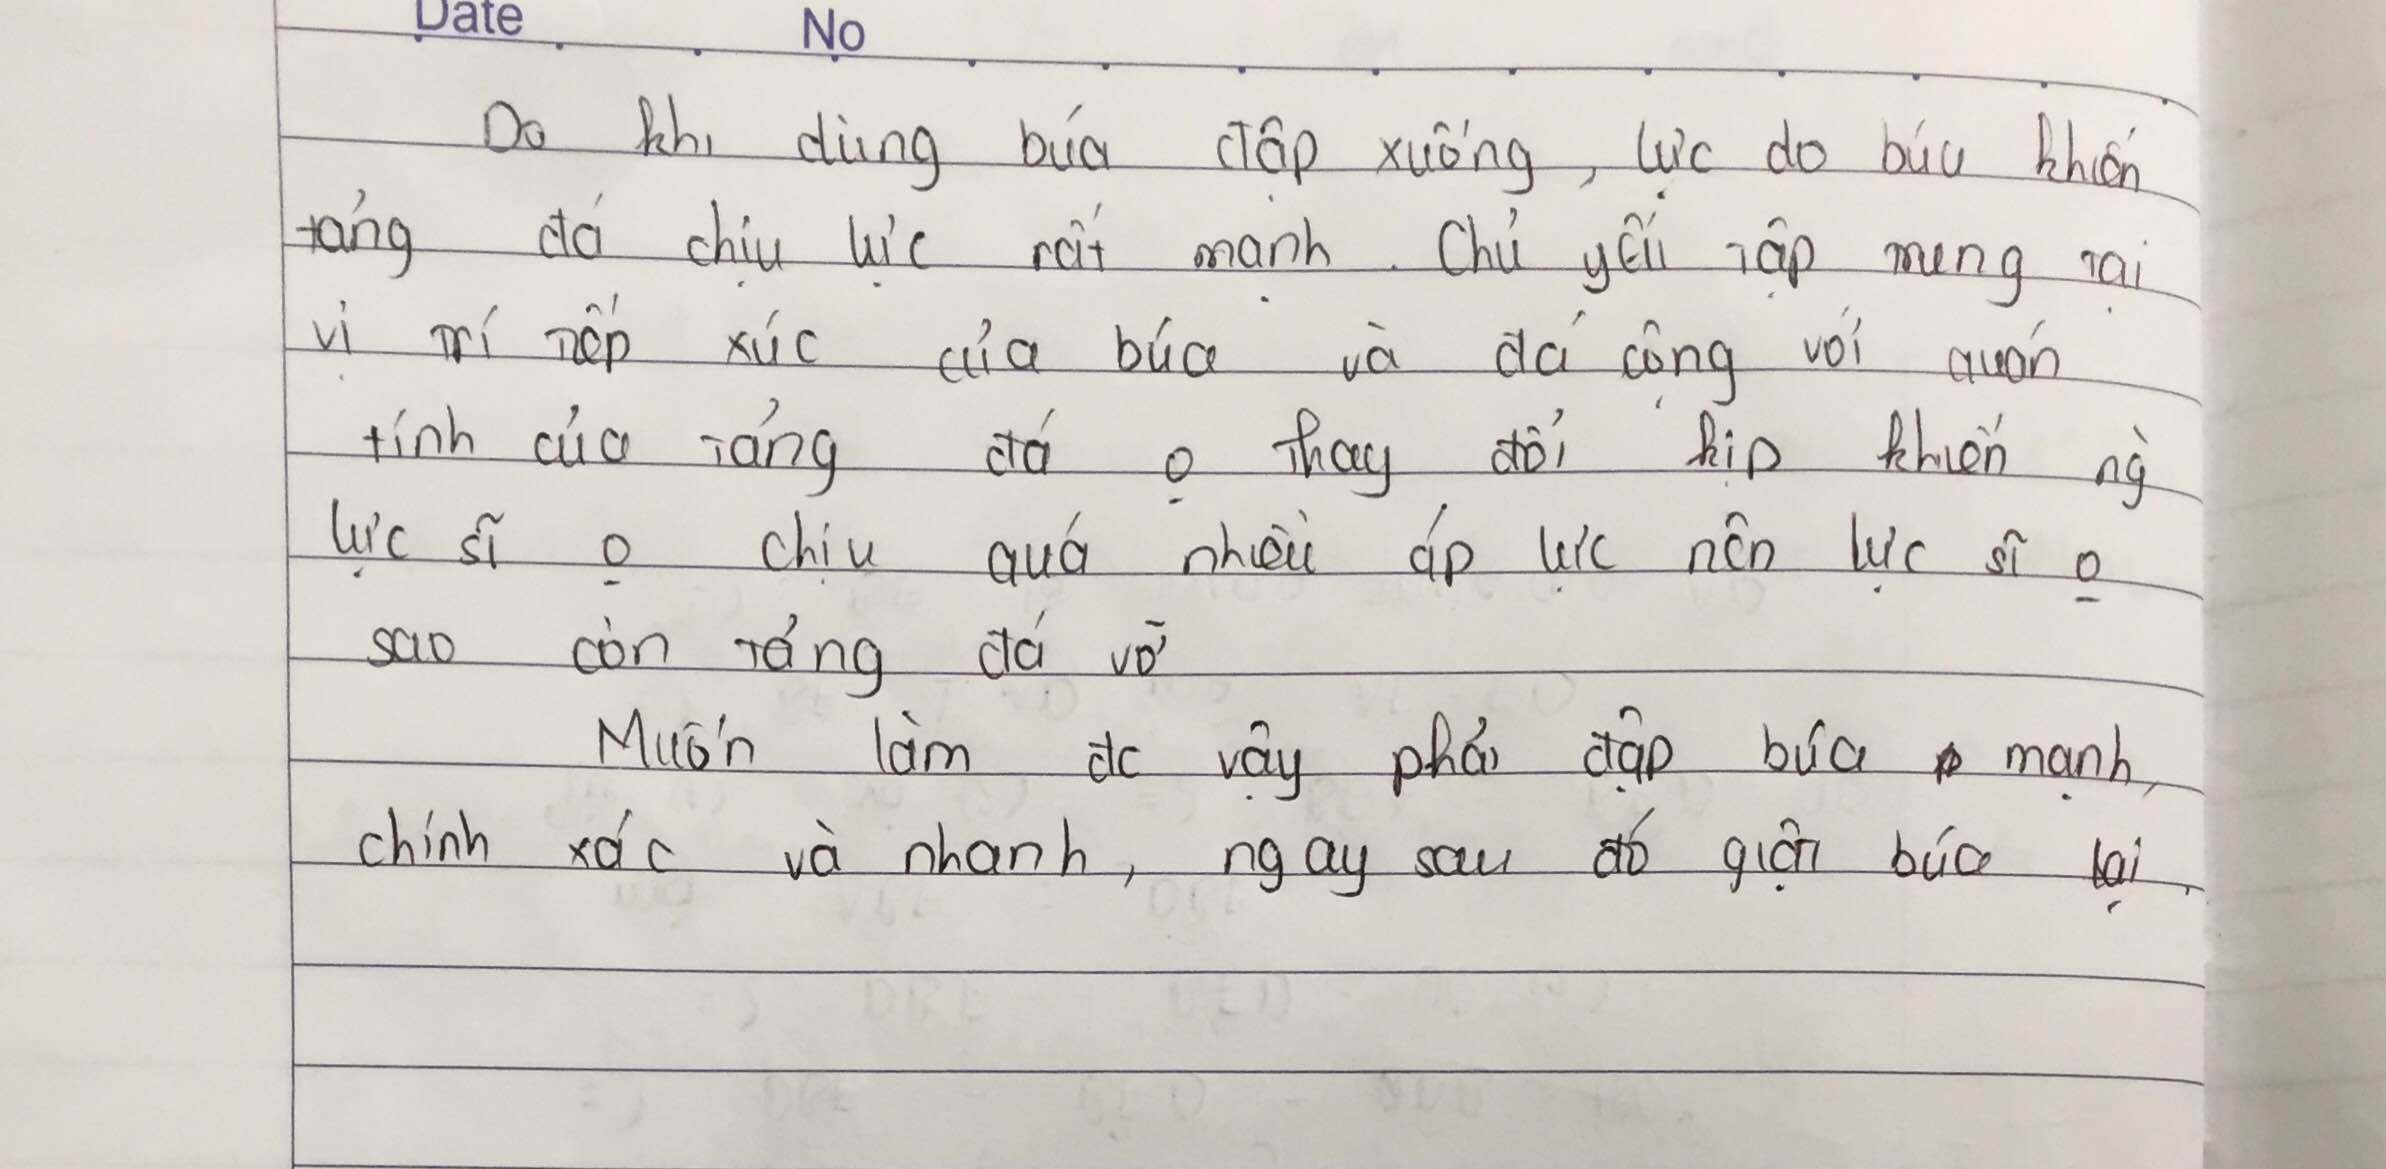 Date No
Do khi dùng búa đập xuống, lực do búa khiến
tảng đá chịu lực rất mạnh. Chủ yếu tập trung tại
vị trí tiếp xúc của búa và đá cộng với quán
tính của tảng đá o thay đổi kịp khiến ng
lực sĩ o chịu quá nhiều áp lực nên lực sĩ o
sao còn tảng đá vỡ
Muốn làm đc vậy phải đập búa mạnh,
chính xác và nhanh, ngay sau đó giật búa lại.